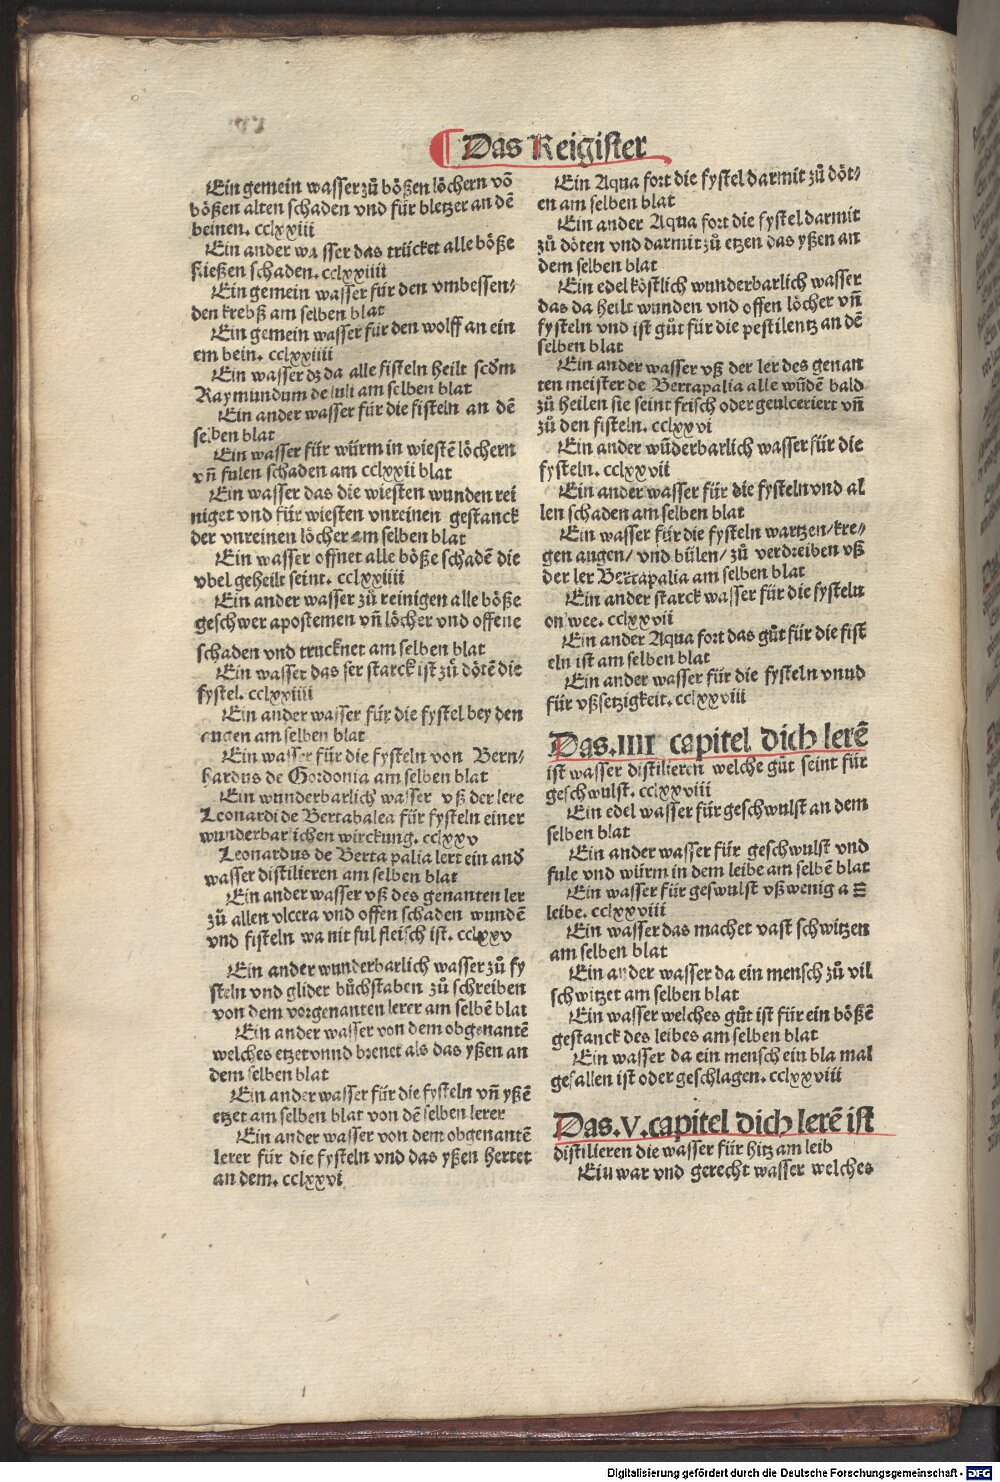 Das Reigister
Ein gemein wasser zů bößen löchern vō
bößen alten schaden vnd für bletzer an dē
beinen. cclxxiii
Ein ander wasser das trücket alle böße
fließen schaden. cclxxiiii
Ein gemein wasser für den vmbessen⸗
den krebß am selben blat
Ein gemein wasser für den wolff an ein
em bein. cclxxiiii
Ein wasser dz da alle fisteln heilt scdm
Raymundum de luli am selben blat
Ein ander wasser für die fisteln an dē
selben blat
Ein wasser für würm in wiestē löchern
vn̄ fulen schaden am cclxxii blat
Ein wasser das die wiesten wunden rei
niget vnd für wiesten vnreinen gestanck
der vnreinen löcher am selben blat
Ein wasser offnet alle böße schadē die
vbel geheilt seint. cclxxiiii
Ein ander wasser zů reinigen alle böße
geschwer apostemen vn̄ löcher vnd offene
schaden vnd trucknet am selben blat
Ein wasser das ser starck ist zů dötē die
fystel. cclxxiiii
Ein ander wasser für die fystel bey den
augen am selben blat
Ein wasser für die fysteln von Bern⸗
hardus de Gordonia am selben blat
Ein wunderbarlich wasser vß der lere
Leonardi de Bertabalea für fysteln einer
wunderbarlichen wirckung. cclxxv
Leonardus de Berta palia lert ein and̕
wasser distilieren am selben blat
Ein ander wasser vß des genanten ler
zů allen vlcera vnd offen schaden wundē
vnd fisteln wa nit ful fleisch ist. cclxxv
Ein ander wunderbarlich wasser zů fy
steln vnd glider bůchstaben zů schreiben
von dem vorgenanten lerer am selbē blat
Ein ander wasser von dem obgenantē
welches etzet vnnd brenet als das yßen an
dem selben blat
Ein ander wasser für die fysteln vn̄ yßē
etzet am selben blat von dē selben lerer
Ein ander wasser von dem obgenantē
lerer für die fysteln vnd das yßen hertet
an dem. cclxxvi
Ein Aqua fort die fystel darmit zů döt⸗
en am selben blat
Ein ander Aqua fort die fystel darmit
zů döten vnd darmit zů etzen das yßen an
dem selben blat
Ein edel köstlich wunderbarlich wasser
das da heilt wunden vnd offen löcher vn̄
fysteln vnd ist gůt für die pestilentz an dē
selben blat
Ein ander wasser vß der ler des genan
ten meister de Bertapalia alle wūdē bald
zů heilen sie seint frisch oder geulceriert vn̄
zů den fisteln. cclxxvi
Ein ander wūderbarlich wasser für die
fysteln. cclxxvii
Ein ander wasser für die fysteln vnd al
len schaden am selben blat
Ein wasser für die fysteln wartzen/ kre⸗
gen augen/ vnd bülen/ zů verdreiben vß
der ler Bertapalia am selben blat
Ein ander starck wasser für die fysteln
on wee. cclxxvii
Ein ander Aqua fort das gůt für die fist
eln ist am selben blat
Ein ander wasser für die fysteln vnnd
für vßsetzigkeit. cclxxviii
Das .IIII capitel dich lerē
ist wasser distilieren welche gůt seint für
geschwulst. cclxxviii
Ein edel wasser für geschwulst an dem
selben blat
Ein ander wasser für geschwulst vnd
fule vnd würm in dem leibe am selbē blat
Ein wasser für geswulst vß wenig a
leibe. cclxxviii
Ein wasser das machet vast schwitzen
am selben blat
Ein ander wasser da ein mensch zů vil
schwitzet am selben blat
Ein wasser welches gůt ist für ein bößē
gestanck des leibes am selben blat
Ein wasser da ein mensch ein bla mal
gefallen ist oder geschlagen. cclxxviii
Das .V. capitel dich lerē ist
distilieren die wasser für hitz am leib
Ein war vnd gerecht wasser welches
Digitalisierung gefördert durch die Deutsche Forschungsgemeinschaft - DFG